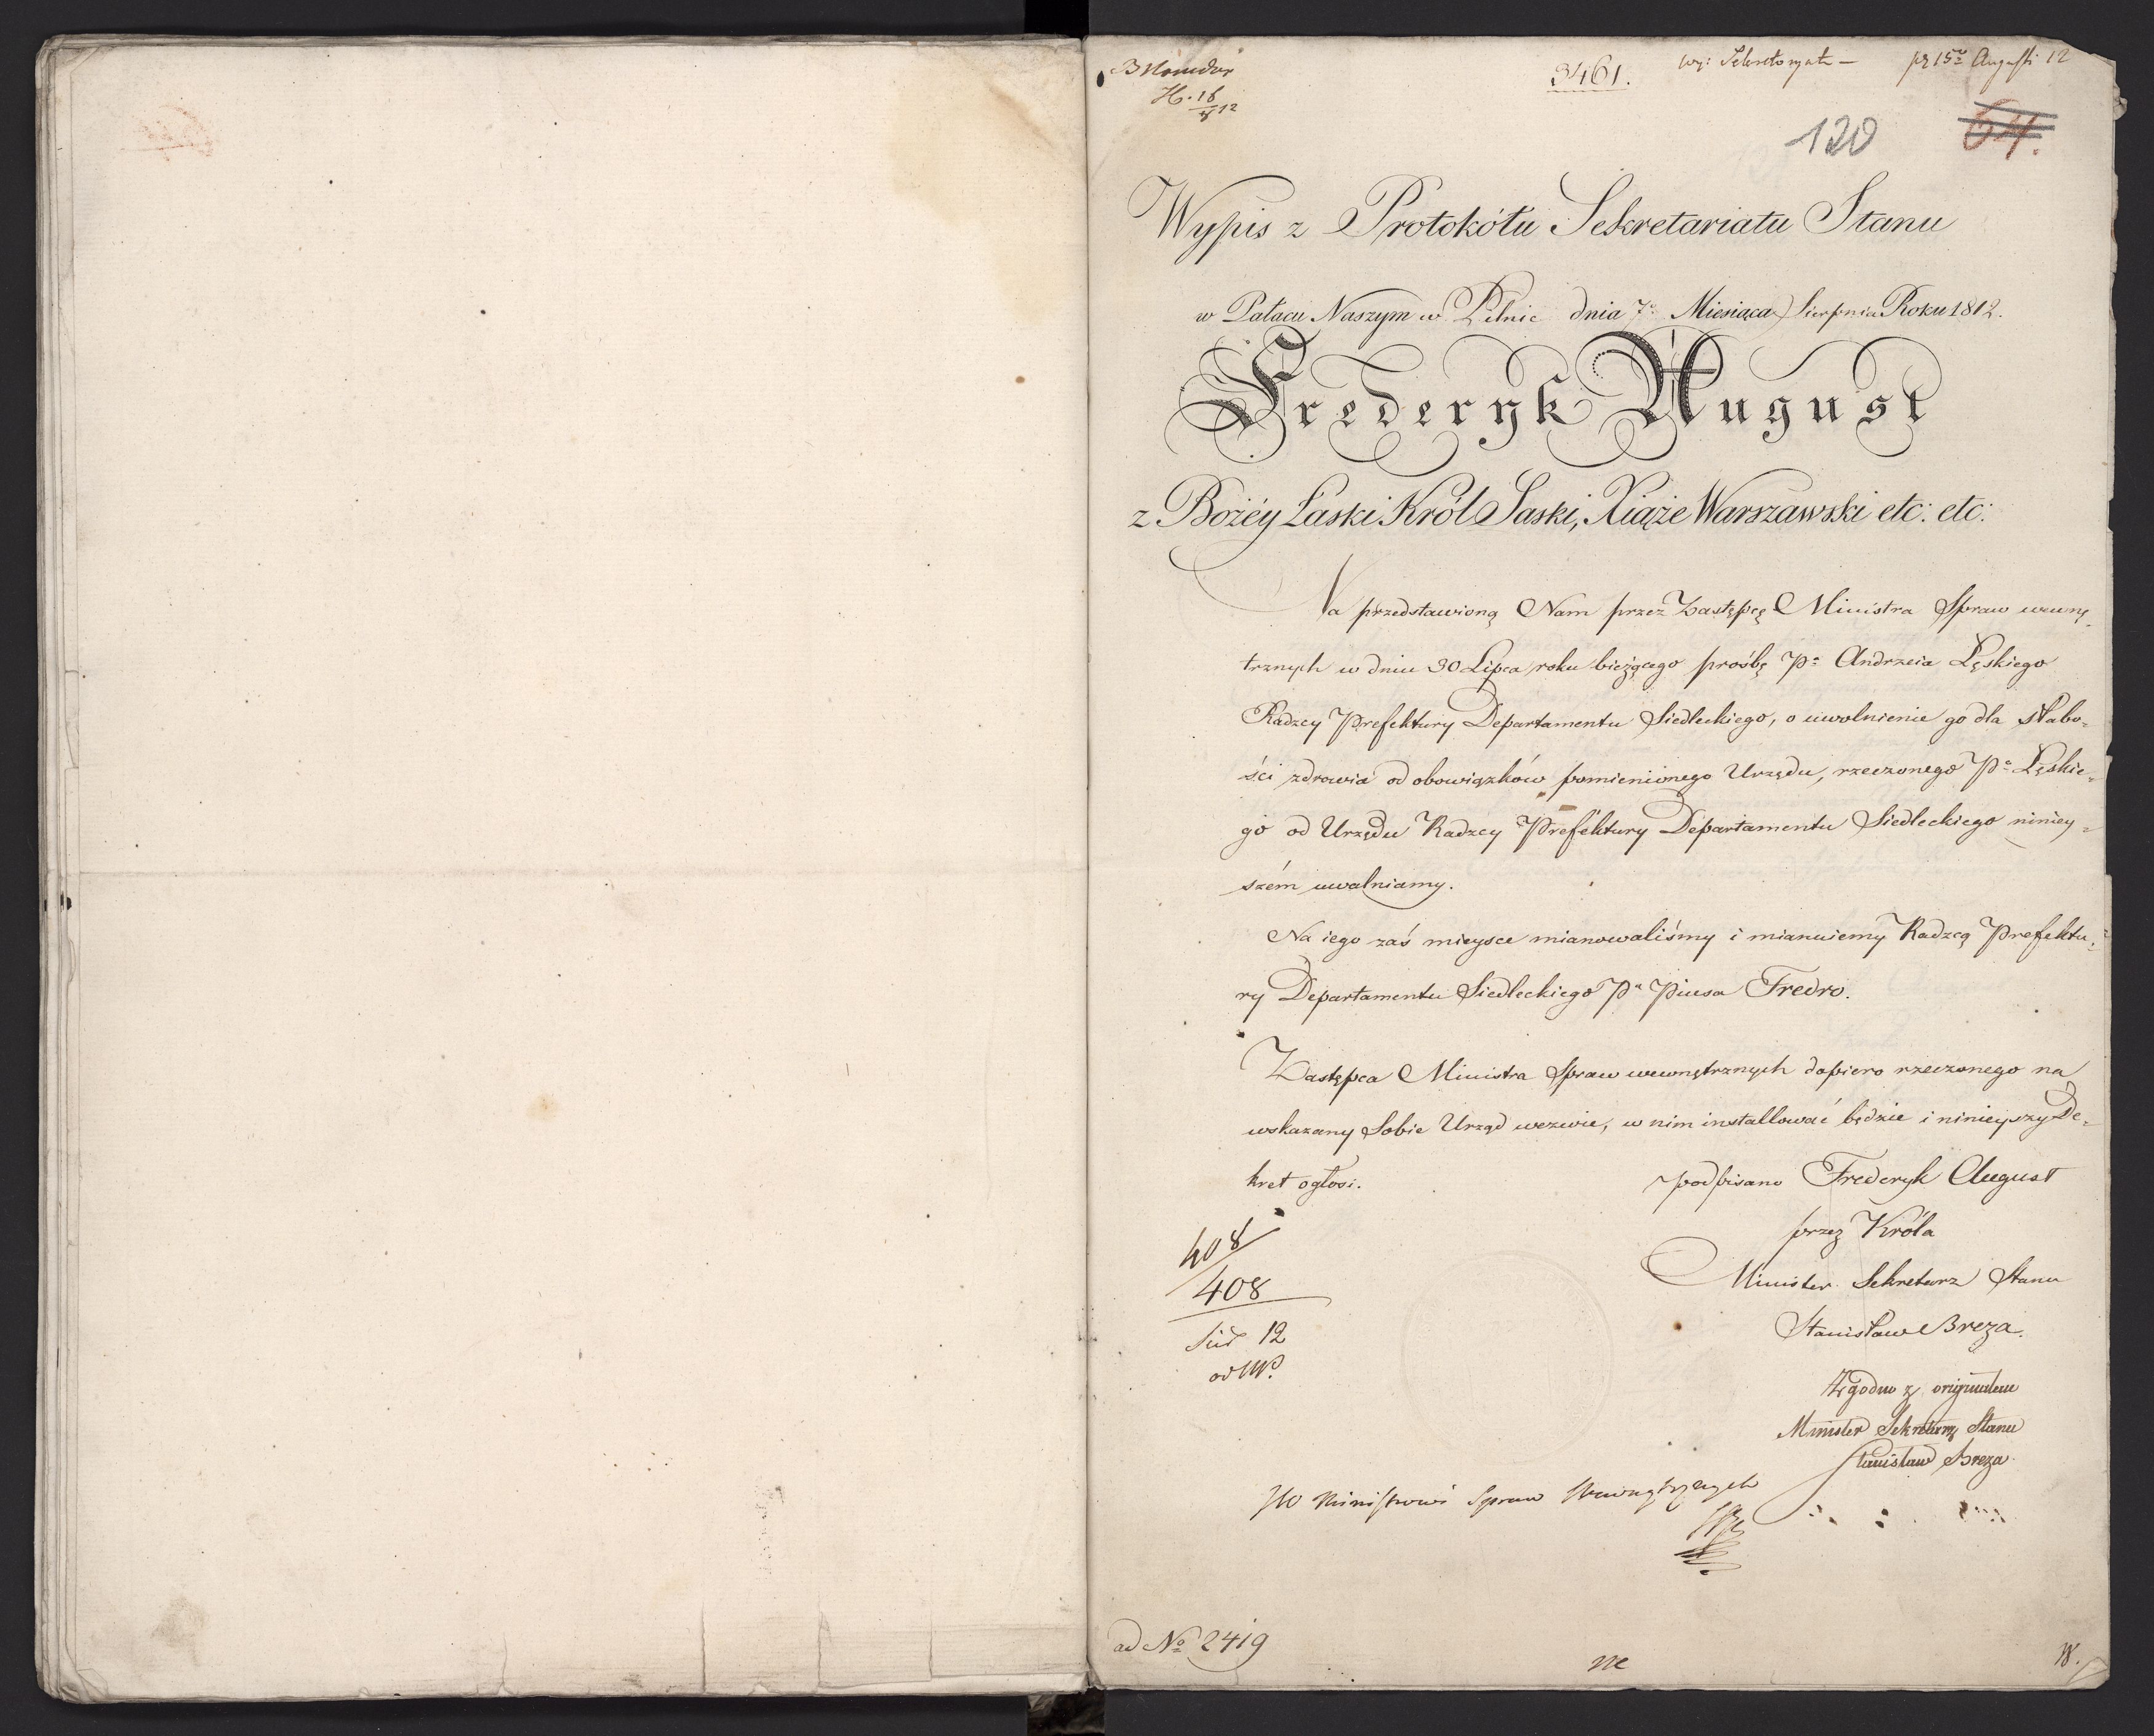 3461.
pr 15 Augusti 12
120
64.
Wypis z Protokółu Sekretariatu Stanu
w Pałacu Naszym w Pilnic dnia 7º Miesiąca Sierpnia Roku 1812.
Frederyk August
z Bożéy Łaski Król Saski, Xiąże Warszawski etc: etc:
Na przedstawioną Nam przez Zastępcę Ministra Spraw wewnę-
trznych w dniu 30 Lipca roku bieżącego prośbę Pª Andrzeia Łęskiego
Radzcy Prefektury Departamentu Siedleckiego, o uwolnienie go dla słabo-
ści zdrowia od obowiązków pomienionego Urzędu, rzeczonego Pª Łęskie-
go od Urzędu Radzcy Prefektury Departamentu Siedleckiego niniey-
szém uwalniamy.
Na iego zaś mieysce mianowaliśmy i mianuiemy Radzcą Prefektu-
ry Departamentu Siedleckiego Pª Piusa Fredro.
Zastępca Ministra Spraw wewnętrznych dopiero rzeczonego na
wskazany Sobie Urząd wezwie, w nim installować będzie i ninieyszy De-
kret ogłosi.
podpisano Frederyk August
przez Króla
Minister Sekretarz Stanu
Stanisław Breza.
408
408
12
Zgodno z originałem
Minister Sekretarz Stanu
Stanisław Breza
Ministrowi Spraw Wewnętrznych
ad Nº 2419